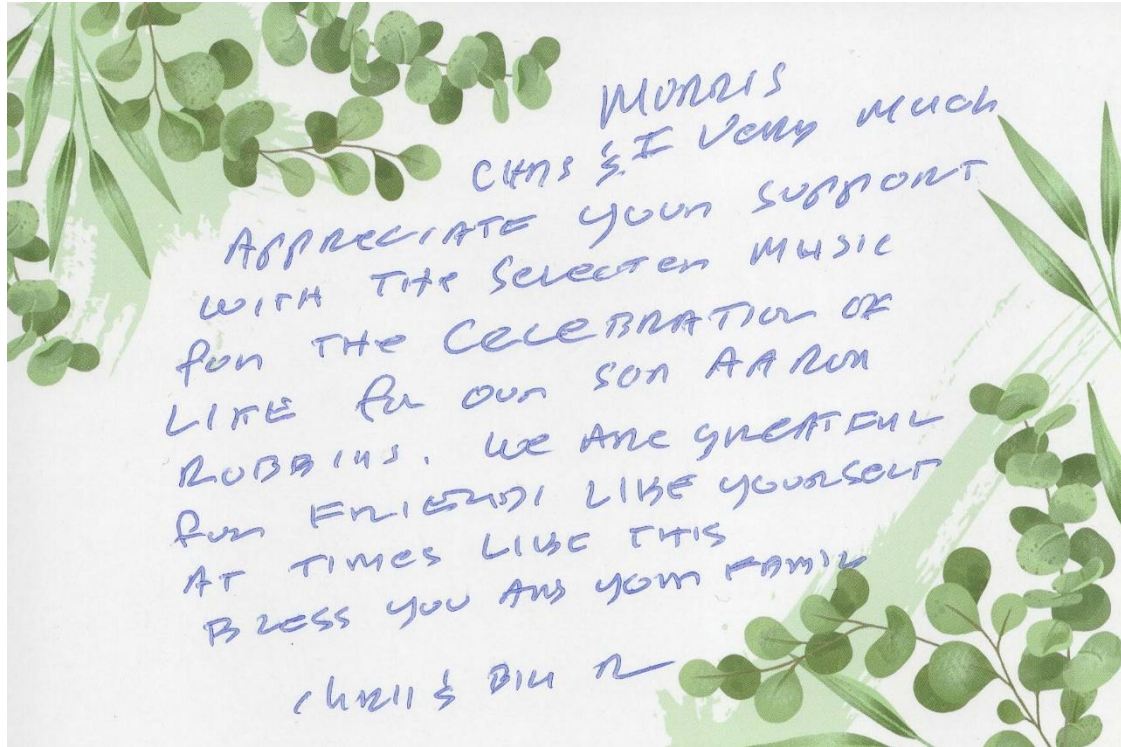 MORRIS
CHRIS & I VERY MUCH
APPRECIATE YOUR SUPPORT
WITH THE SELECTED MUSIC
FOR THE CELEBRATION OF
LIFE FOR OUR SON AARON
ROBBINS. WE ARE GREATFUL
FOR FRIENDS LIKE YOURSELF
AT TIMES LIKE THIS
BLESS YOU AND YOUR FAMILY
CHRIS & BILL R